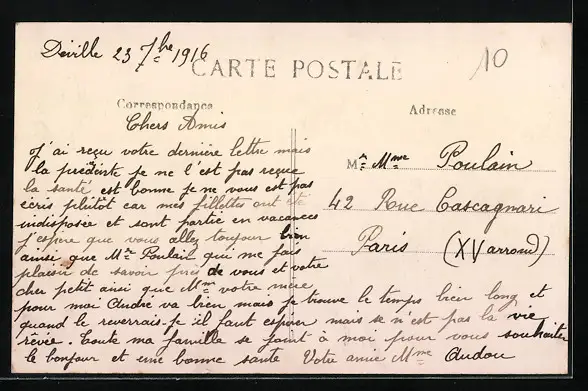 Déville 23 7bre 1916
CARTE POSTALE
10
Correspondance
Adresse
Chers Amis
J'ai reçu votre dernière lettre mais
la précédente je ne l'est pas reçue
la santé est bonne je ne vous est pas
écris plutôt car mes fillettes ont été
indisposée et sont partie en vacances
j'espère que vous allez toujour bien
ainsi que Mr Poulail qui me fais
plaisir de savoir près de vous et votre
cher petit ainsi que Mme votre mère
pour moi André va bien mais je trouve le temps bien long et
quand le reverrais-je il faut espérer mais se n'est pas la vie
rêvée. Toute ma famille se joint à moi pour vous souhaiter
le bonjour et une bonne santé Votre amie Mme Audou
Mr. Mme Poulain
42 Rue Castagnari
Paris (XV arrond)